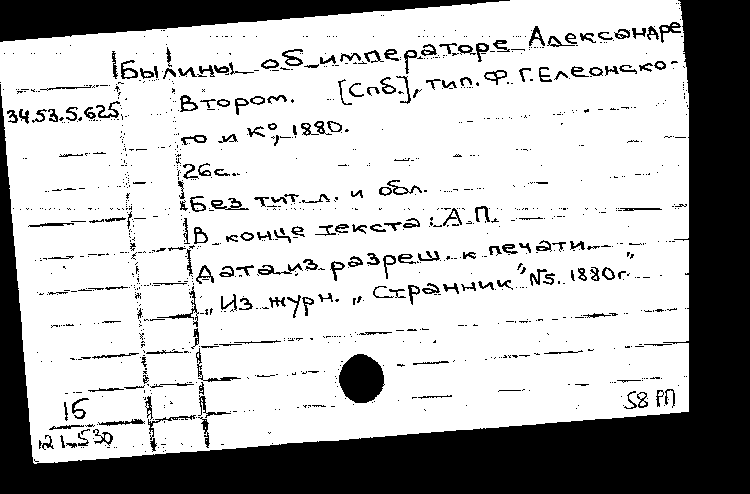 Былины об императоре Александре
34.53.5.625
Втором. [Спб.], тип. Ф. Г. Елеонско-
го и К°, 1880.
26 с.
Без тит. л. и обл.
В конце текста: А.П.
Дата из разреш. к печати.
„Из журн. „Странник" №5. 1880г."
16
121530
58 РП